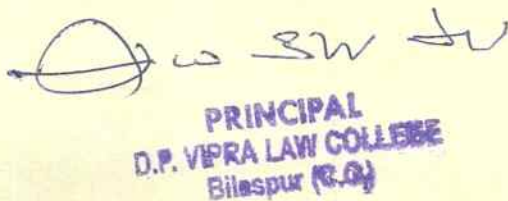 PRINCIPAL
D.P. VIPRA LAW COLLEGE
Bilaspur (C.G.)